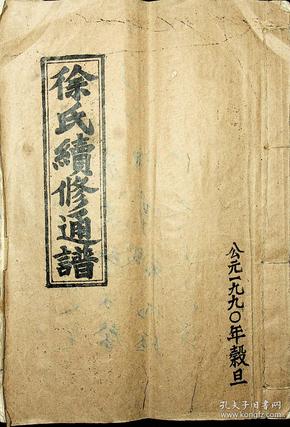 徐氏續修通譜
公元一九九〇年穀旦
孔夫子旧书网